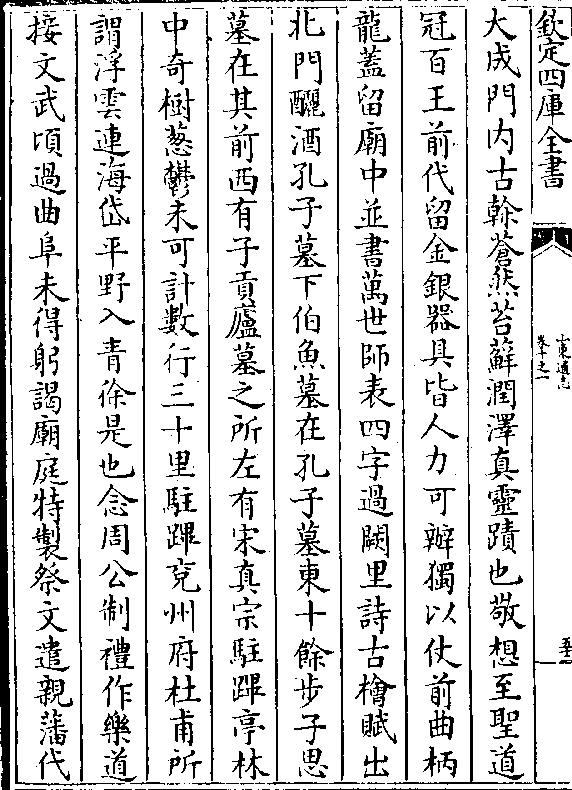 欽定四庫全書
山東通志
卷十之一
大成門内古榦蒼然苔蘚潤澤真靈蹟也敬想至聖道
冠百王前代留金銀器具皆人力可辦獨以仗前曲柄
龍蓋留廟中並書萬世師表四字過闕里詩古檜賦出
北門釃酒孔子墓下伯魚墓在孔子墓東十餘步子思
墓在其前西有子貢廬墓之所左有宋真宗駐蹕亭林
中奇樹葱鬱未可計數行三十里駐蹕兖州府杜甫所
謂浮雲連海岱平野入青徐是也念周公制禮作樂道
接文武頃過曲阜未得躬謁廟庭特製祭文遣親藩代